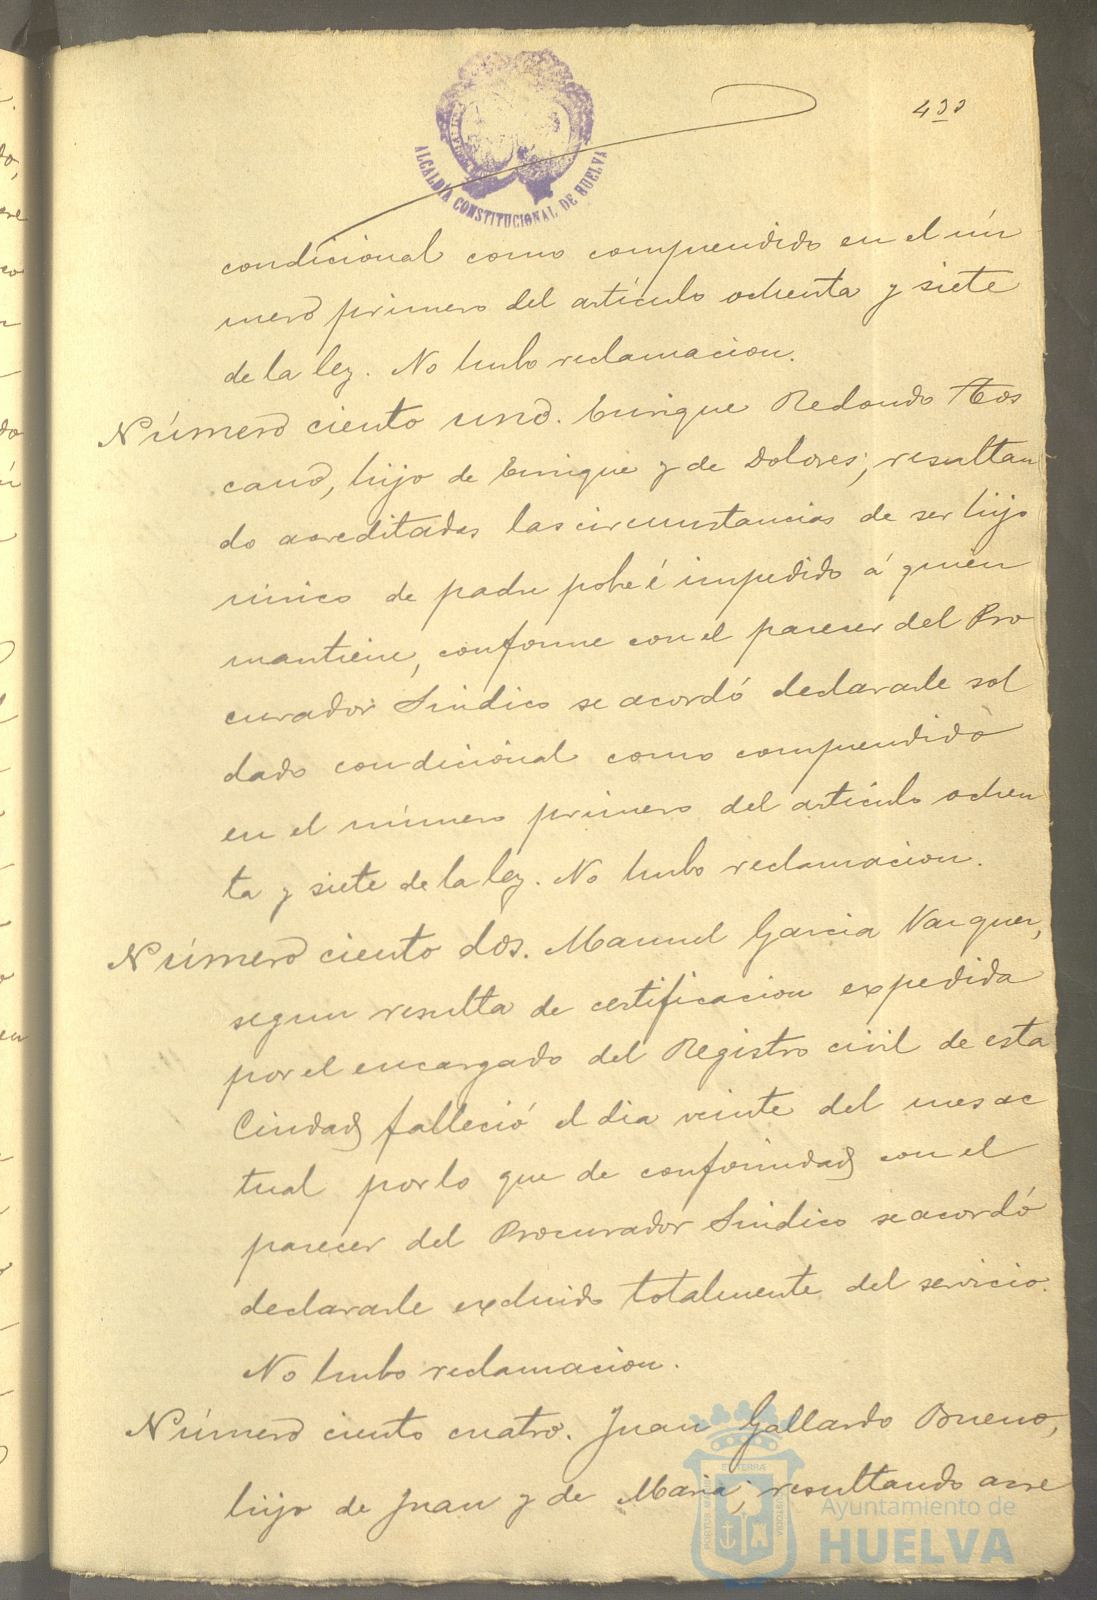 433
ALCALDÍA CONSTITUCIONAL DE HUELVA
condicional como comprendido en el nú
mero primero del artículo ochenta y siete
de la ley. No hubo reclamacion.
Número ciento uno. Enrique Redondo Tos
cano, hijo de Enrique y de Dolores; resultan
do acreditadas las circunstancias de ser hijo
único de padre pobre é impedido á quien
mantiene, conforme con el parecer del Pro
curador Síndico se acordó declararle sol
dado condicional como comprendido
en el número primero del artículo ochen
ta y siete de la ley. No hubo reclamacion.
Número ciento dos. Manuel Garcia Vazquez,
segun resulta de certificacion expedida
por el encargado del Registro civil de esta
Ciudad falleció el dia veinte del mes ac
tual por lo que de conformidad con el
parecer del Procurador Síndico se acordó
declararle excluido totalmente del servicio.
No hubo reclamacion.
Número ciento cuatro. Juan Gallardo Bueno,
hijo de Juan y de Maria; resultando acre
Ayuntamiento de
HUELVA